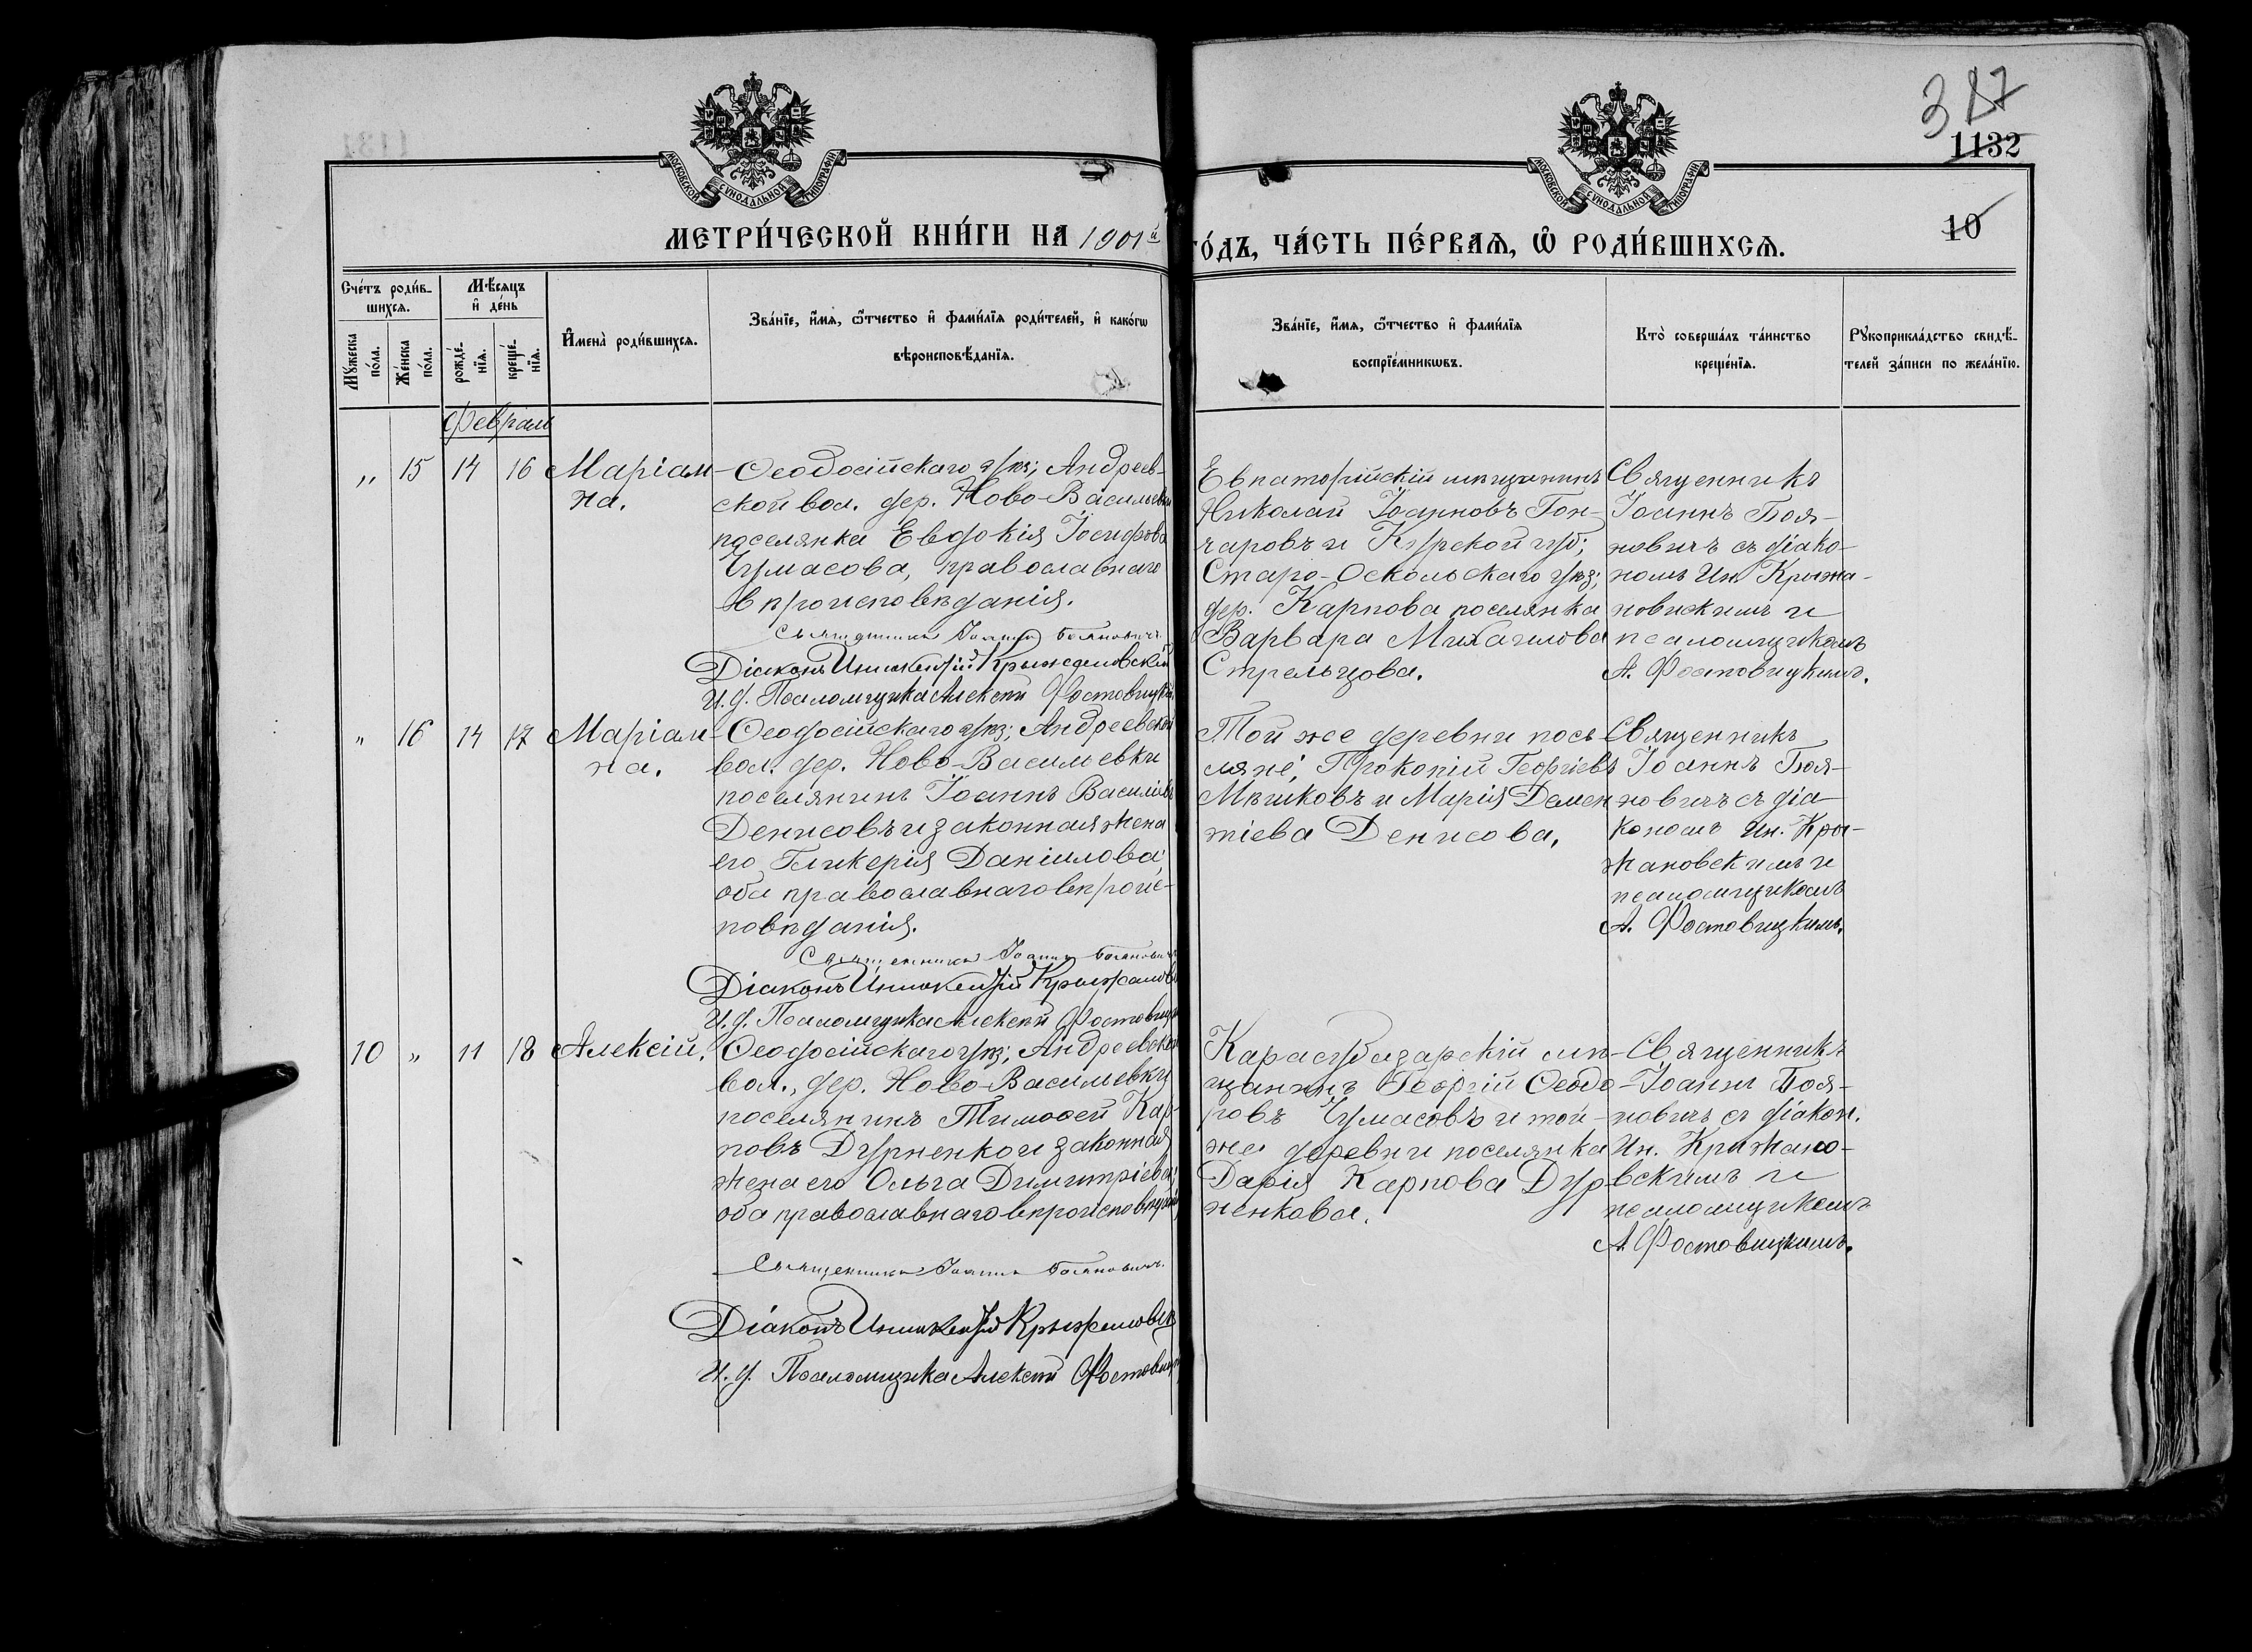 387
1132
10
МОСКОВСКОЙ СѴНОДАЛЬНОЙ ТИПОГРАФІИ
МОСКОВСКОЙ СѴНОДАЛЬНОЙ ТИПОГРАФІИ
МЕТРИ́ЧЕСКОЙ КНИ́ГИ НА 1901й
ГО́ДЪ, ЧА́СТЬ ПЕ́РВАѦ, Ѡ҆ РОДИ́ВШИХСѦ.
Сче́тъ роди́в-
шихсѧ.
Мꙋжеска
по́ла.
Же́нска
по́ла.
Мѣ́сѧцъ
и҆ де́нь
рожде́-
нїѧ.
креще́-
нїѧ.
И҆мена̀ роди́вшихсѧ.
Зва́нїе, и҆́мѧ, ѻ҆́тчество и҆ фами́лїѧ роди́телей, и҆ како́гѡ
вѣроисповѣ́данїѧ.
Зва́нїе, и҆́мѧ, ѻ҆́тчество и҆ фами́лїѧ
воспрїе́мникѡвъ.
Кто̀ соверша́лъ та́инство
креще́нїѧ.
Рꙋкоприкла́дство свидѣ́-
телей за́писи по жела́нїю.
Февраль
„ 15 14 16 Маріам-
на.
Ѳеодосійскаго уѣз; Андреев-
ской вол. дер. Ново-Васильевки
поселянка Евдокія Іосифова
Чумасова, православнаго
вѣроисповѣданія.
Священникъ Іоаннъ Бояновичъ.
Діаконъ Иннокентій Крыжановскій
И. д. Псаломщика Алексѣй Фостовицкій
Евпаторійскій мѣщанинъ
Николай Іоанновъ Гон-
чаровъ и Курской губ;
Старо-Оскольскаго уѣз;
дер. Карпова поселянка
Варвара Михаилова
Стрельцова.
Священникъ
Іоаннъ Боя-
новичъ съ діако-
номъ Ин. Крыжа-
новскимъ и
псаломщикомъ
А. Фостовицкимъ.
„ 16 14 17 Маріам-
на.
Ѳеодосійскаго уѣз; Андреевской
вол. дер. Ново-Васильевки
поселянинъ Іоаннъ Васильевъ
Денисовъ и законная жена
его Гликерія Даніилова;
оба православнаго вѣроис-
повѣданія.
Священникъ Іоаннъ Бояновичъ
Діаконъ Иннокентій Крыжановскій
И. д. Псаломщика Алексѣй Фостовицкій
Той же деревни посе-
ляне, Прокопій Георгіевъ
Мѣшковъ и Марія Демен
тіева Денисова.
Священникъ
Іоаннъ Боя-
новичъ съ діа-
кономъ Ин. Кры-
жановскимъ и
псаломщикомъ
А. Фостовицкимъ.
10 „ 11 18 Алексій.
Ѳеодосійскаго уѣз; Андреевской
вол., дер. Ново-Васильевки
поселянинъ Тимоѳей Кар-
повъ Дурненко и законная
жена его Ольга Димитріева;
оба православнаго вѣроисповѣданія
Священникъ Іоаннъ Бояновичъ.
Діаконъ Иннокентій Крыжановск
И. д. Псаломщика Алексѣй Фостовицк
Карасубазарскій мѣ-
щанинъ Георгій Ѳеодо-
ровъ Чумасовъ и той-
же деревни поселянка
Дарія Карпова Дур-
ненкова.
Священникъ
Іоаннъ Боя-
новичъ съ діакон.
Ин. Крыжано-
вскимъ и
псаломщикомъ
А. Фостовицкимъ.